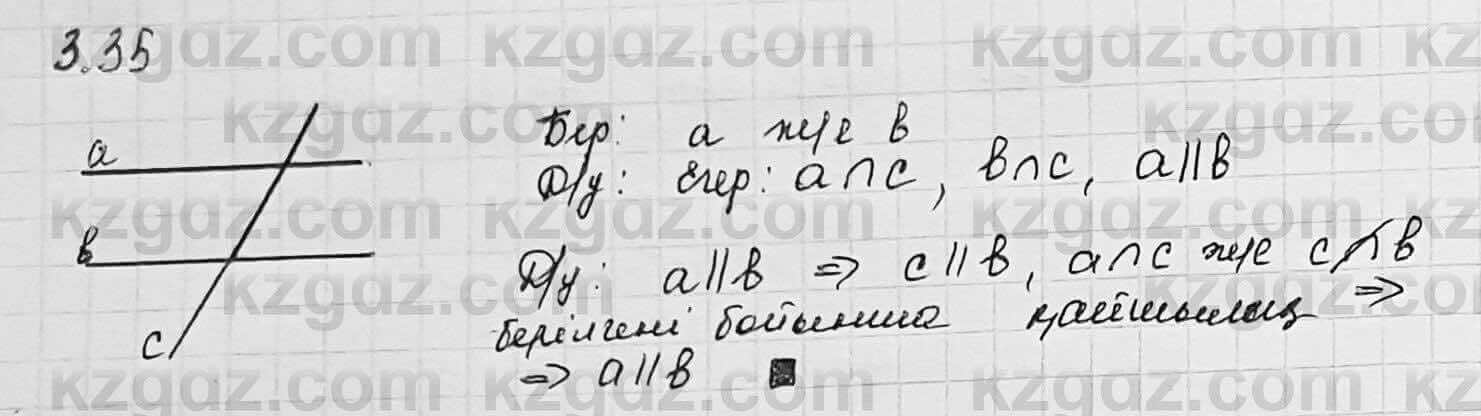 3.35
a
в
c
Бер: a ж/е в
Д/у: Егер: a∩c, в∩c, a||в
Д/у: a||в ⇒ c||в, a∩c ж/е c∩̸в
берілгені бойынша қайшылық ⇒
⇒ a||в ■
kzgaz.com